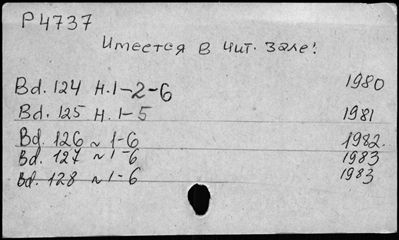 P4737
Имеется в чит. зале!
Bd. 124 H. 1-2-6 1980
Bd. 125 H. 1-5 1981
Bd. 126 ~ 1-6 1982.
Bd. 127 ~ 1-6 1983
Bd. 128 ~ 1-6 1983